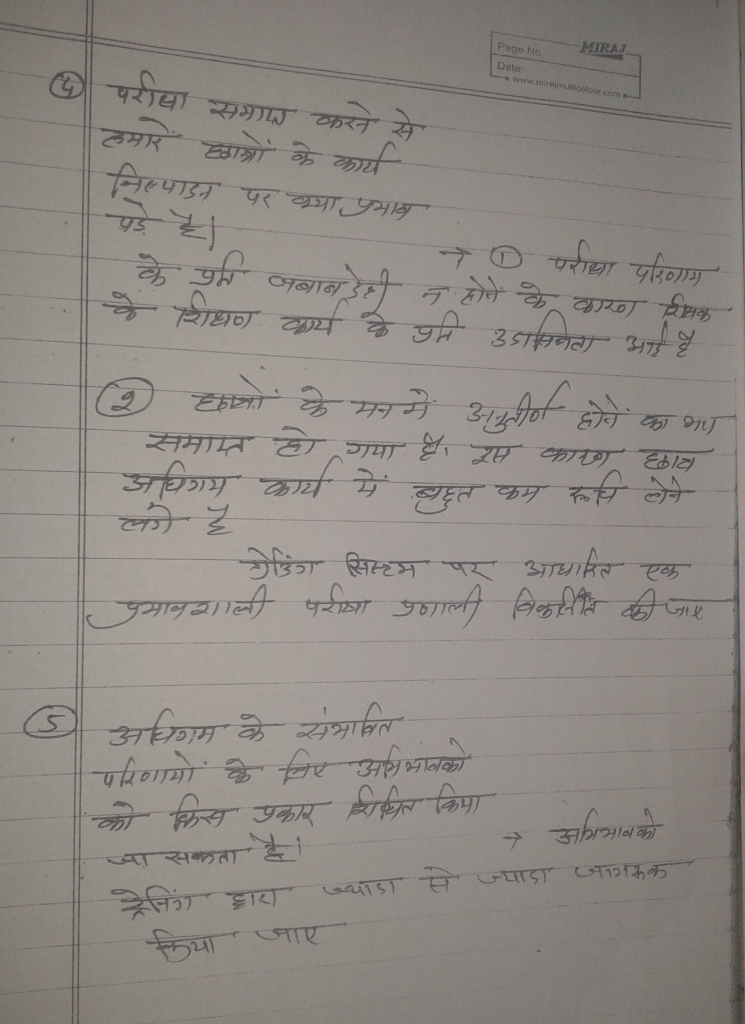 Page No.
MIRAJ
Date:
www.mirajmulticolour.com
④ परीक्षा समाप्त करने से
हमारें छात्रों के कार्य
निष्पादन पर क्या प्रभाव
पड़े है।
→ ① परीक्षा परिणाम
के प्रति जबाबदेही न होने के कारण शिक्षक
के शिक्षण कार्य के प्रति उदासिनता आई है
② छात्रों के मन में अनुतीर्ण होनें का भय
समाप्त हो गया है। इस कारण छात्र
अधिगम कार्य में बहुत कम रूचि लेने
लगे है
ग्रेडिंग सिस्टम पर आधारित एक
प्रभावशाली परीक्षा प्रणाली विकसित की जाए
⑤ अधिगम के संभावित
परिणामों के लिए अभिभावको
को किस प्रकार शिक्षित किया
जा सकता है।
→ अभिभावको
ट्रेनिंग द्वारा ज्यादा से ज्यादा जागरूक
किया जाए